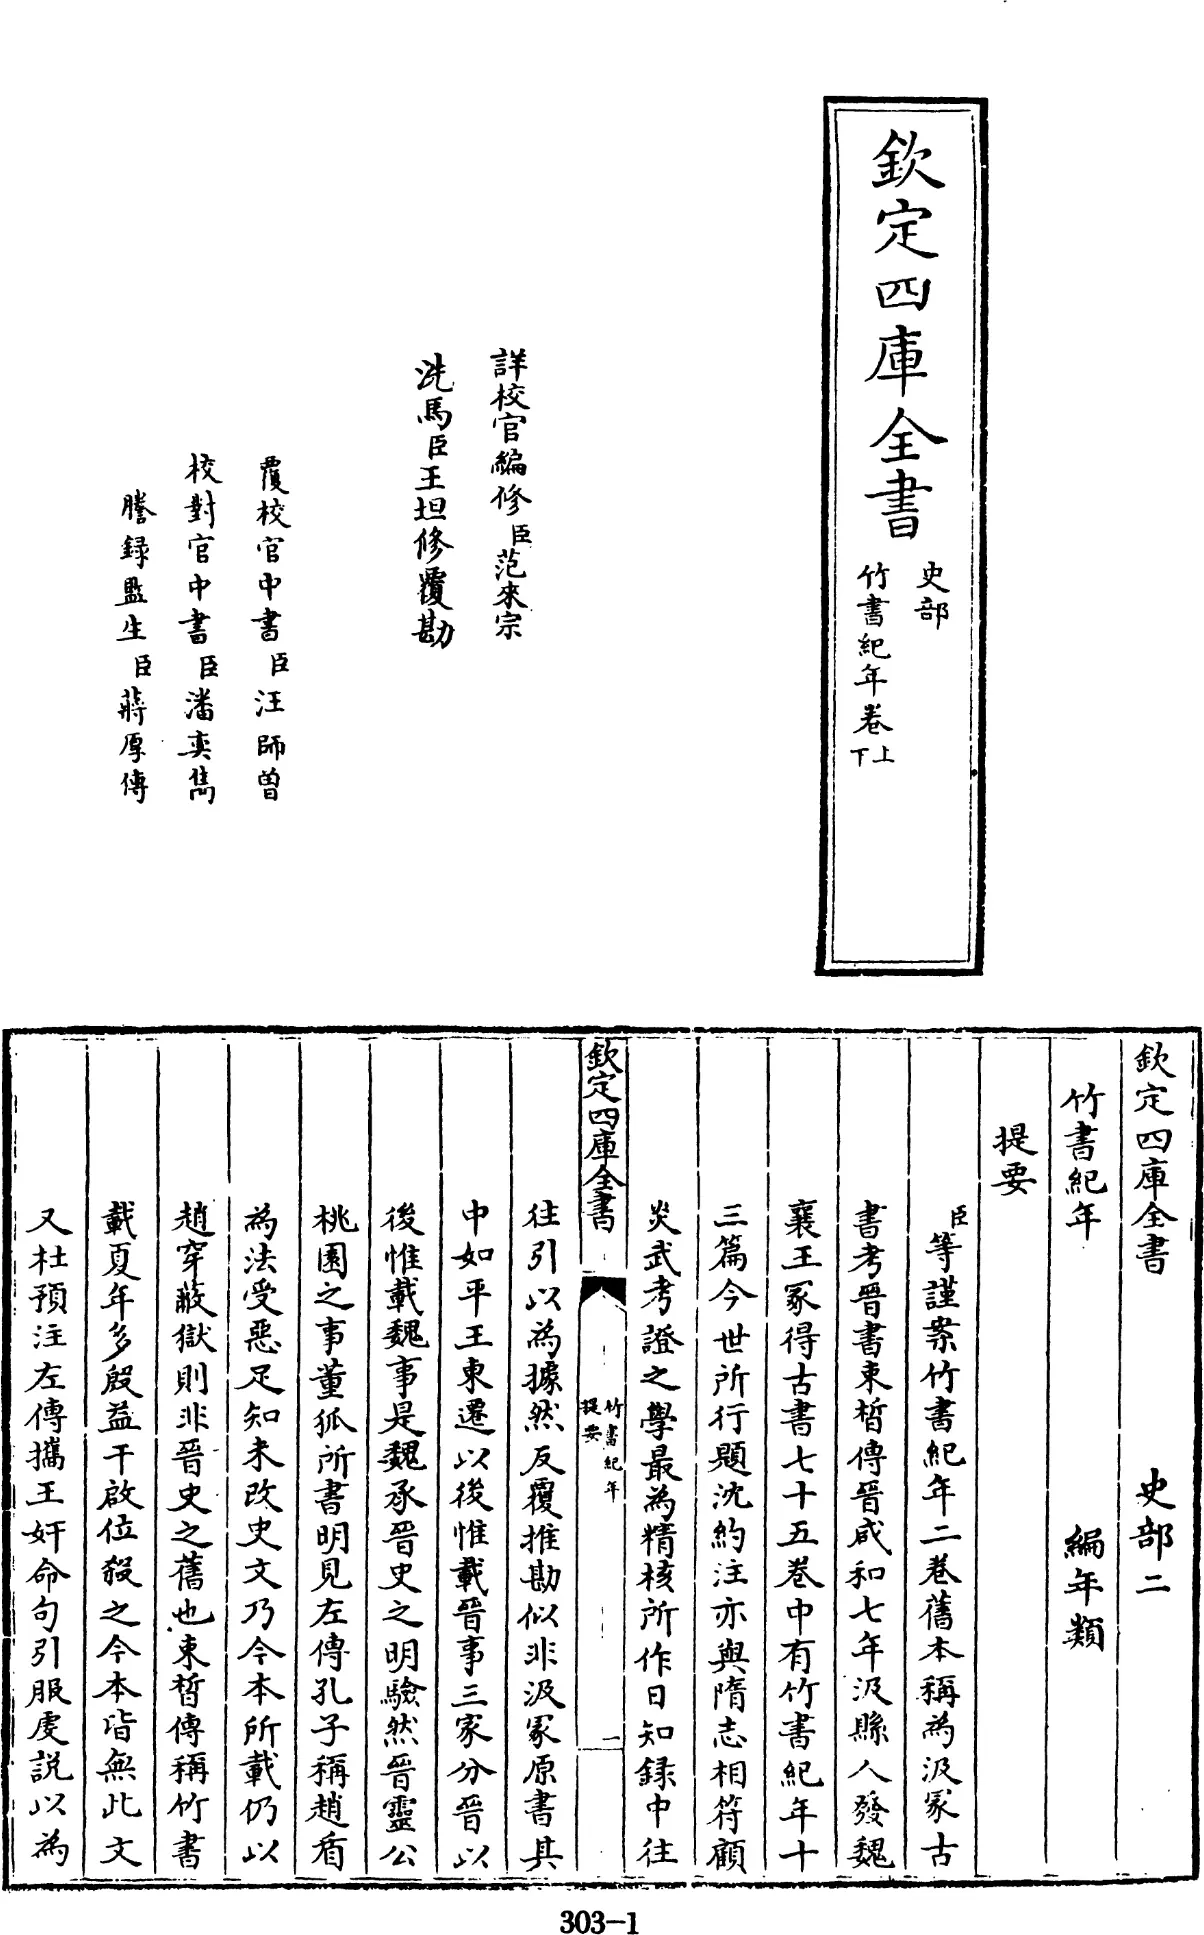 欽定四庫全書
史部
竹書紀年卷上
下
詳校官編修臣范來宗
洗馬臣王坦修覆勘
覆校官中書臣汪師曾
校對官中書臣潘奕雋
謄錄監生臣蔣厚傳
欽定四庫全書 史部二
竹書紀年 編年類
提要
臣等謹案竹書紀年二卷舊本稱為汲冢古
書考晉書束晳傳晉咸和七年汲縣人發魏
襄王冢得古書七十五卷中有竹書紀年十
三篇今世所行題沈約注亦與隋志相符顧
炎武考證之學最為精核所作日知錄中往
欽定四庫全書
竹書紀年
提要
一
往引以為據然反覆推勘似非汲冢原書其
中如平王東遷以後惟載晉事三家分晉以
後惟載魏事是魏承晉史之明驗然晉靈公
桃園之事董狐所書明見左傳孔子稱趙盾
為法受惡足知未改史文乃今本所載仍以
趙穿蔽獄則非晉史之舊也束晳傳稱竹書
載夏年多殷益干啟位殺之今本皆無此文
又杜預注左傳攜王奸命句引服虔説以為
303-1